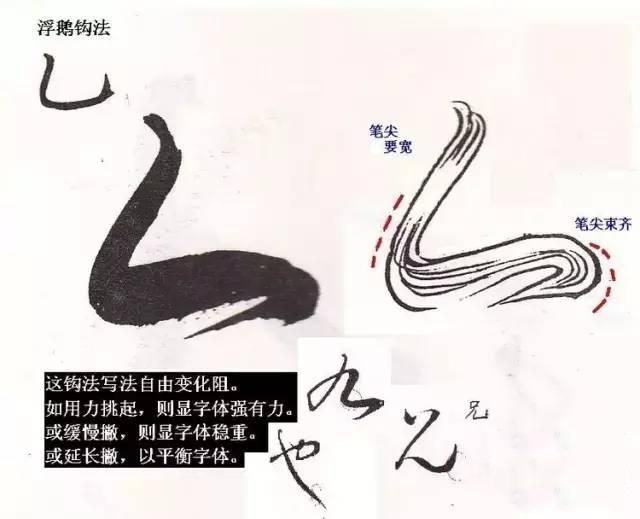 浮鹅钩法
笔尖
要宽
笔尖束齐
这钩法写法自由变化阻。
如用力挑起，则显字体强有力。
或缓慢撇，则显字体稳重。
或延长撇，以平衡字体。
九
也
兄
兄